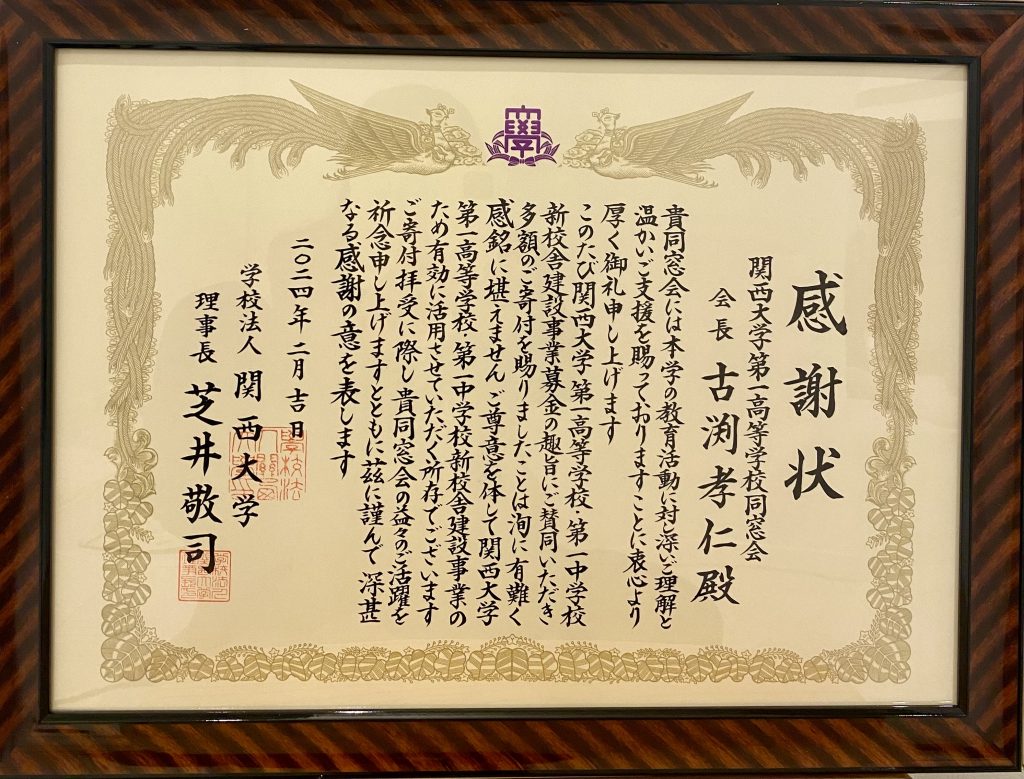 感謝状
関西大学第一高等学校同窓会
会長 古渕孝仁殿
貴同窓会には本学の教育活動に対し深いご理解と
温かいご支援を賜っておりますことに衷心より
厚く御礼申し上げます
このたび関西大学第一高等学校・第一中学校
新校舎建設事業募金の趣旨にご賛同いただき
多額のご寄付を賜りましたことは洵に有難く
感銘に堪えません ご尊意を体して関西大学
第一高等学校・第一中学校新校舎建設事業の
ため有効に活用させていただく所存でございます
ご寄付拝受に際し貴同窓会の益々のご活躍を
祈念申し上げますとともに茲に謹んで深甚
なる感謝の意を表します
二〇二四年二月吉日
学校法人 関西大学
理事長 芝井敬司